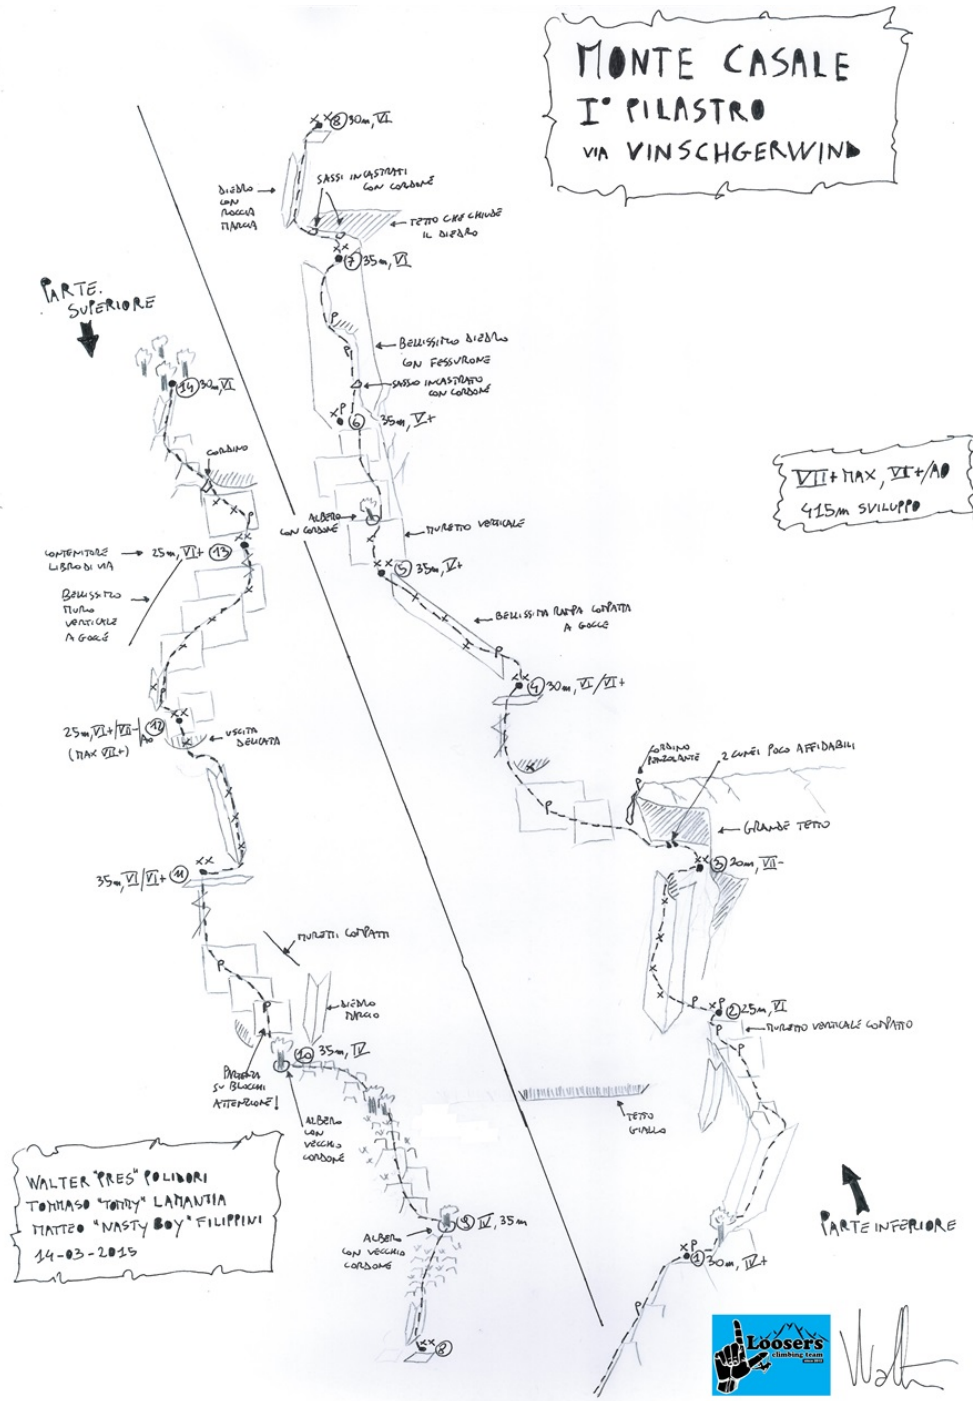 MONTE CASALE
I° PILASTRO
VIA VINSCHGERWIND
8 30m, VI
SASSI INCASTRATI
CON CORDONE
DIEDRO
CON
ROCCIA
MARCIA
TETTO CHE CHIUDE
IL DIEDRO
7 35m, VI
BELLISSIMO DIEDRO
CON FESSURONE
SASSO INCASTRATO
CON CORDONE
P
P
xP
6 35m, V+
ALBERO
CON CORDONE
MURETTO VERTICALE
5 35m, V+
BELLISSIMA RAMPA COMPATTA
A GOCCE
P
4 30m, VI/VI+
CORDINO
PENZOLANTE
2 CUNEI POCO AFFIDABILI
P
GRANDE TETTO
3 20m, VII-
P
xP
2 25m, VI
MURETTO VERTICALE COMPATTO
P
P
TETTO
GIALLO
xP
1 30m, IV+
P
PARTE INFERIORE
PARTE
SUPERIORE
14 30m, VI
CORDINO
P
CONTENITORE
LIBRO DI VIA
25m, VI+ 13
BELLISSIMO
MURO
VERTICALE
A GOCCE
25m, VI+/VII-/A0 12
(MAX VII+)
USCITA
DELICATA
35m, VI/VI+ 11
MURETTI COMPATTI
P
P
DIEDRO
MARCIO
10 35m, IV
PARTENZA
SU BLOCCHI
ATTENZIONE!
ALBERO
CON
VECCHIO
CORDONE
9 IV, 35m
ALBERO
CON VECCHIO
CORDONE
8
VII+ MAX, VI+/A0
415m SVILUPPO
WALTER "PRES" POLIDORI
TOMMASO "TOMMY" LAMANTIA
MATTEO "NASTY BOY" FILIPPINI
14-03-2015
Loosers
climbing team